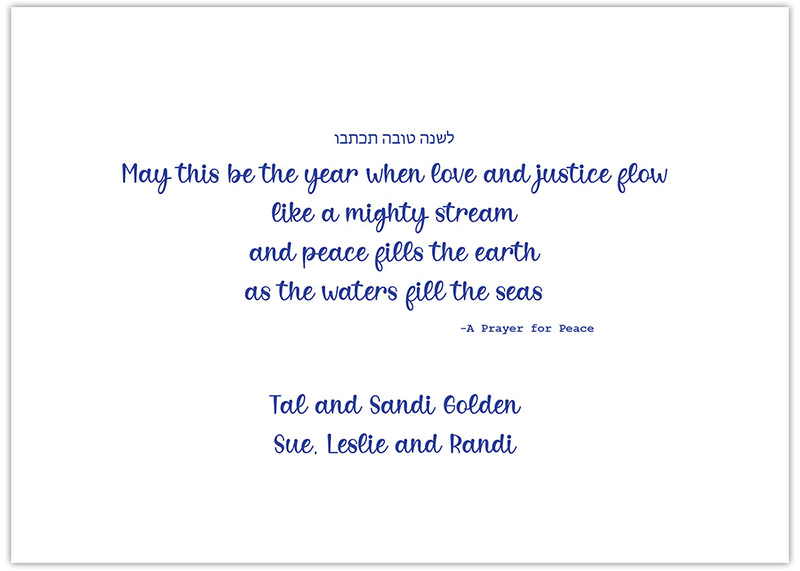 לשנה טובה תכתבו
May this be the year when love and justice flow
like a mighty stream
and peace fills the earth
as the waters fill the seas
-A Prayer for Peace
Tal and Sandi Golden
Sue, Leslie and Randi